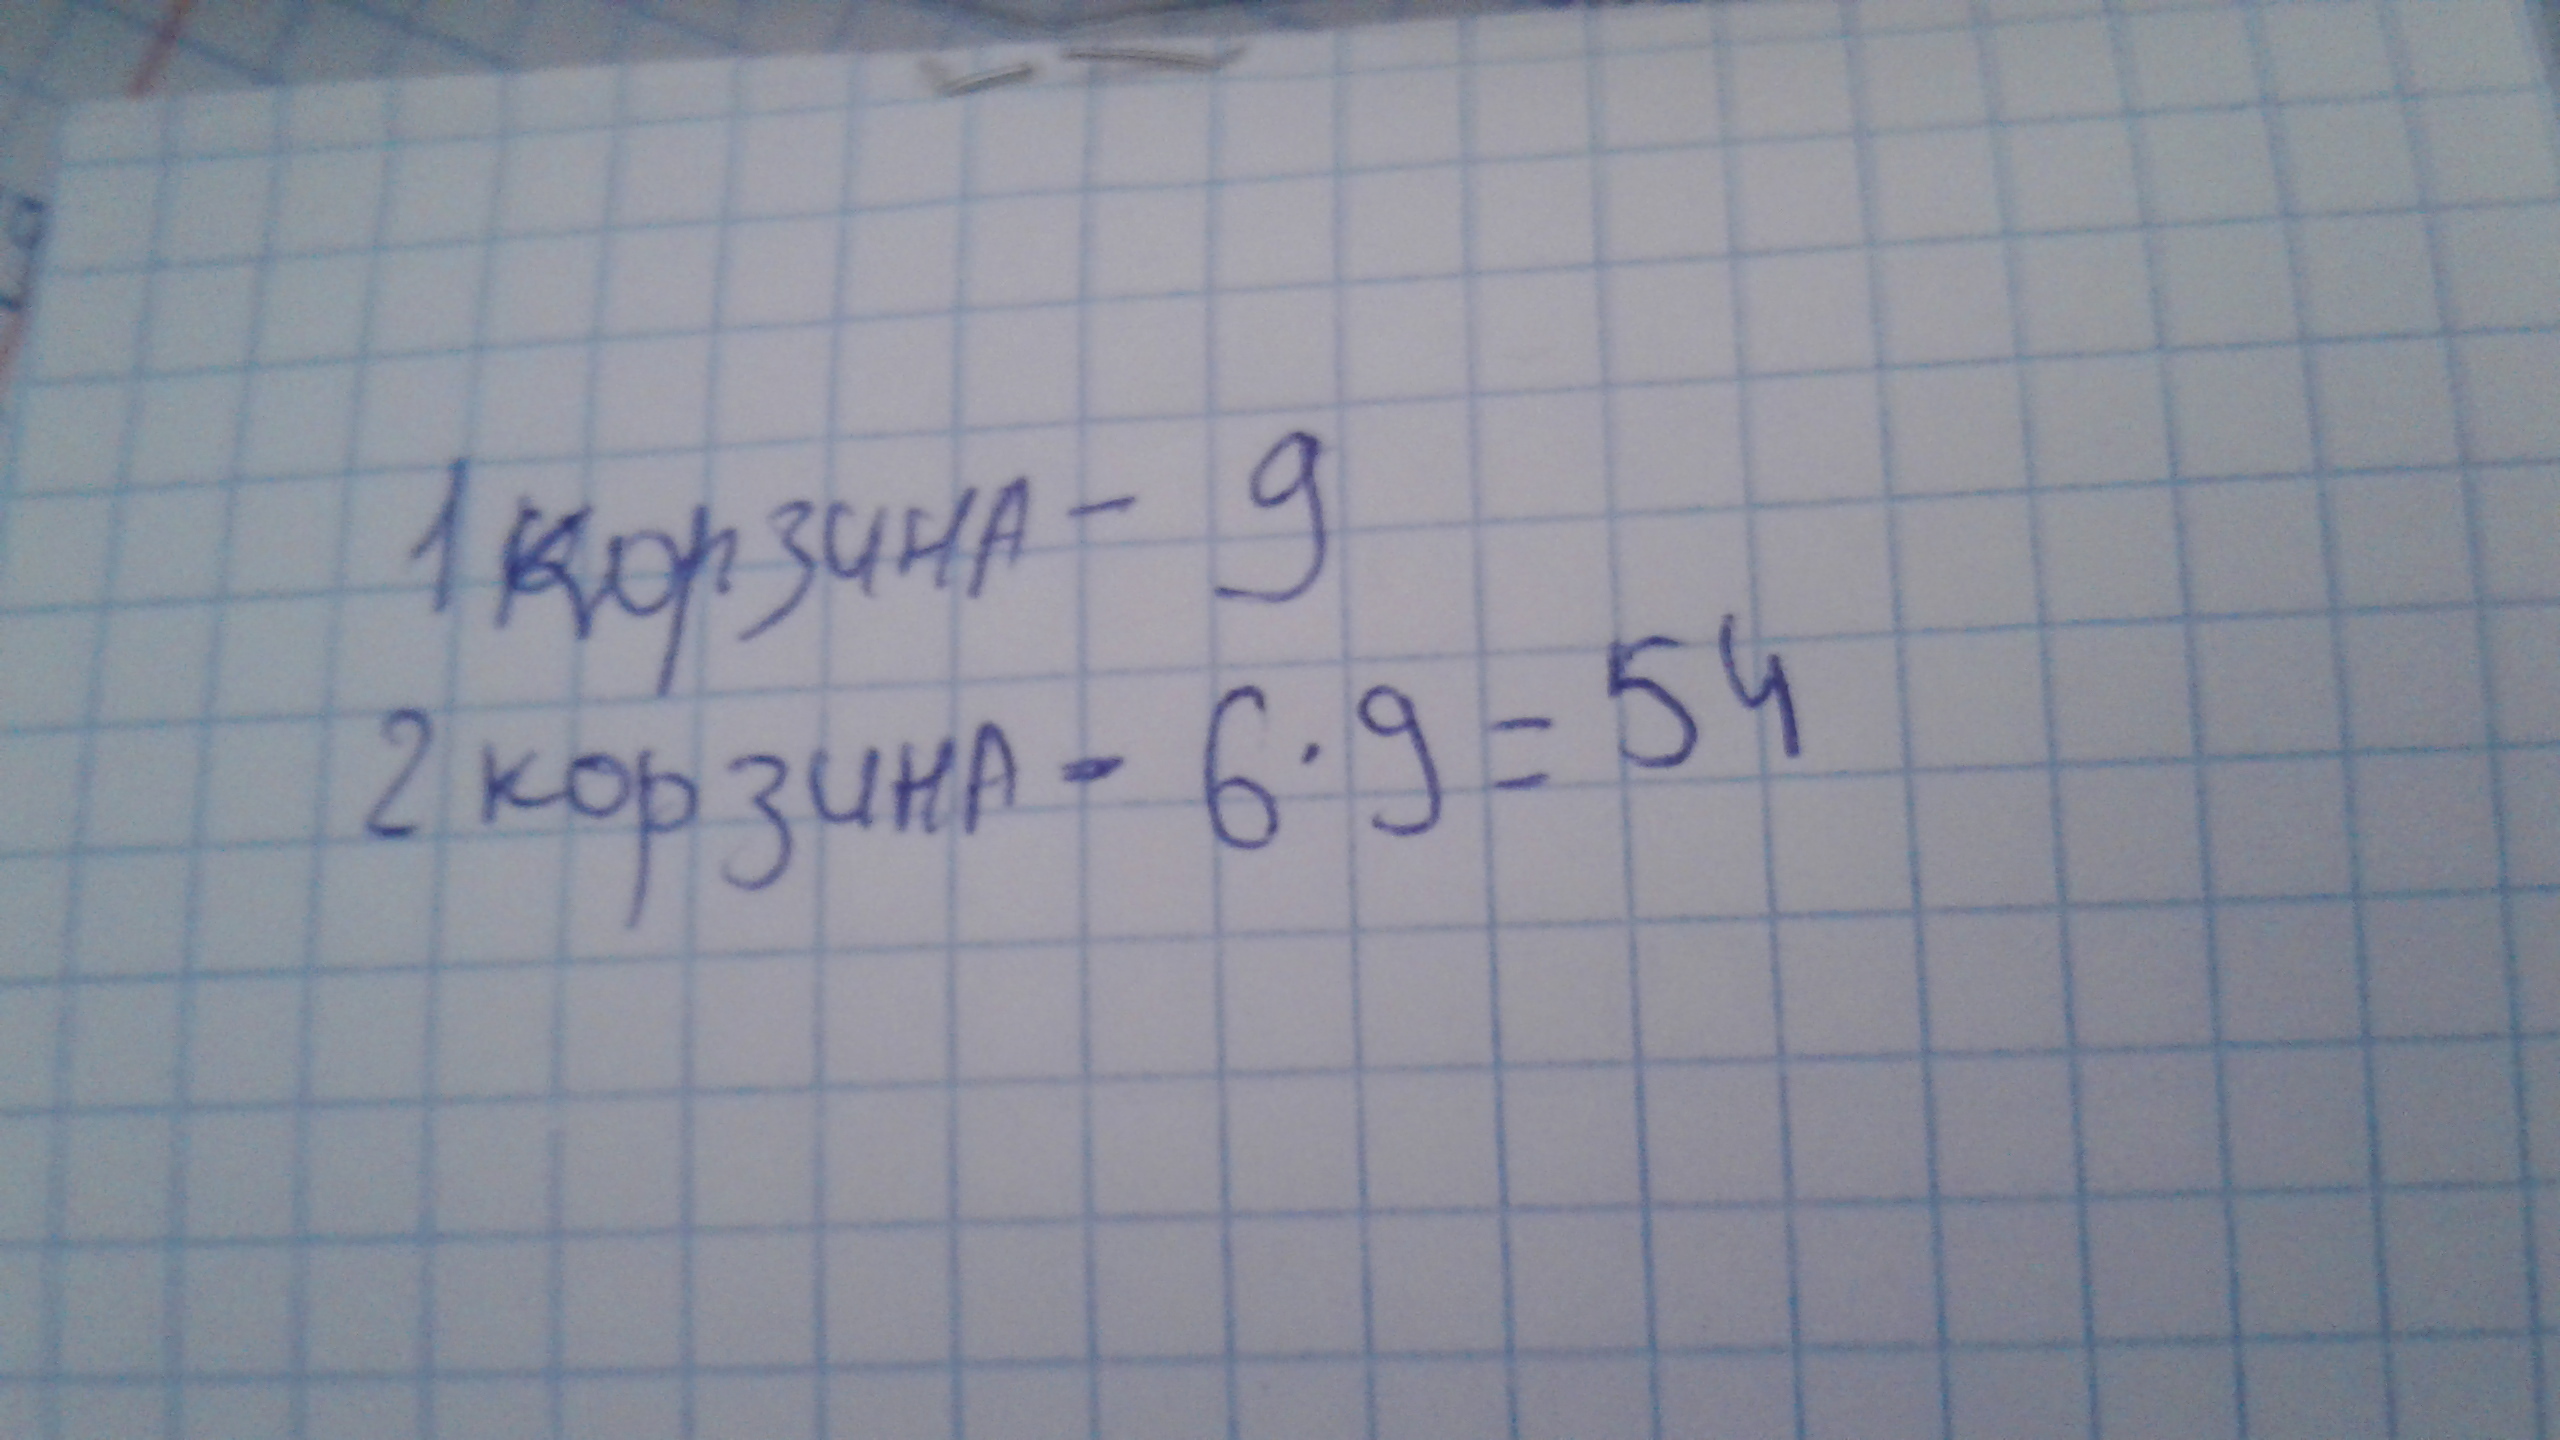 1 корзина - 9
2 корзина - 6·9=54